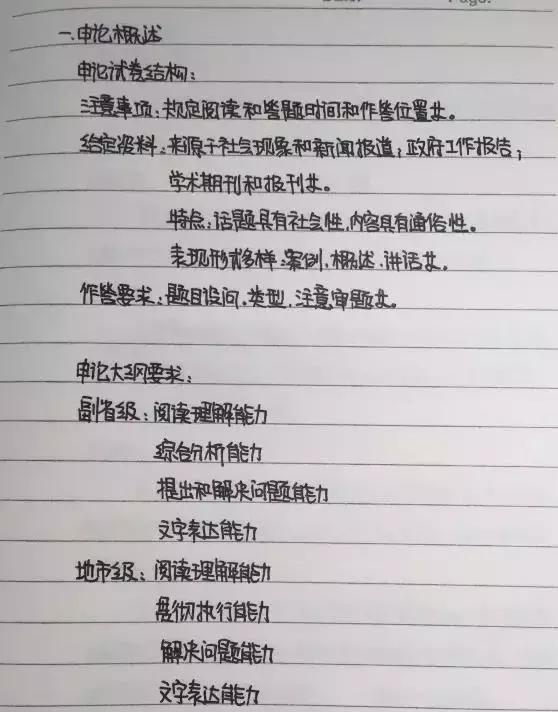 一.申论概述
申论试卷结构：
注意事项：规定阅读和答题时间和作答位置等。
给定资料：来源于社会现象和新闻报道；政府工作报告；
学术期刊和报刊等。
特点：话题具有社会性，内容具有通俗性。
表现形式多样：案例、概述、讲话等。
作答要求：题目设问、类型、注意审题等。
申论大纲要求：
副省级：阅读理解能力
综合分析能力
提出和解决问题能力
文字表达能力
地市级：阅读理解能力
贯彻执行能力
解决问题能力
文字表达能力